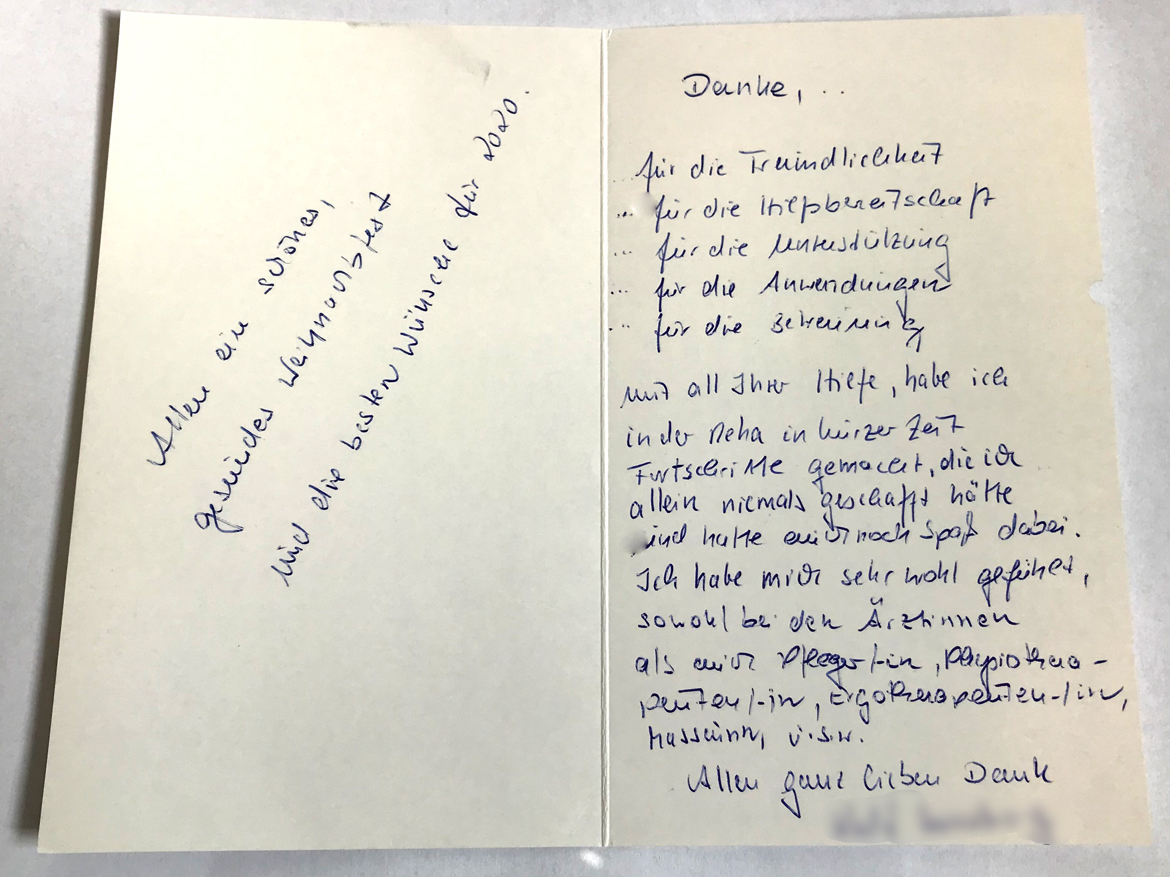 Allen ein schönes,
gesundes Weihnachtsfest
und die besten Wünsche für 2020.
Danke, ..
... für die Freundlichkeit
... für die Hilfsbereitschaft
... für die Unterstützung
... für die Anwendungen
... für die Betreuung
Mit all Ihrer Hilfe, habe ich
in der Reha in kurzer Zeit
Fortschritte gemacht, die ich
allein niemals geschafft hätte
und hatte auch noch Spaß dabei.
Ich habe mich sehr wohl gefühlt,
sowohl bei den Ärztinnen
als auch Pfleger/-in, Physiothera-
peuten/-in, Ergotherapeuten-/in,
u.s.w.
Allen ganz lieben Dank